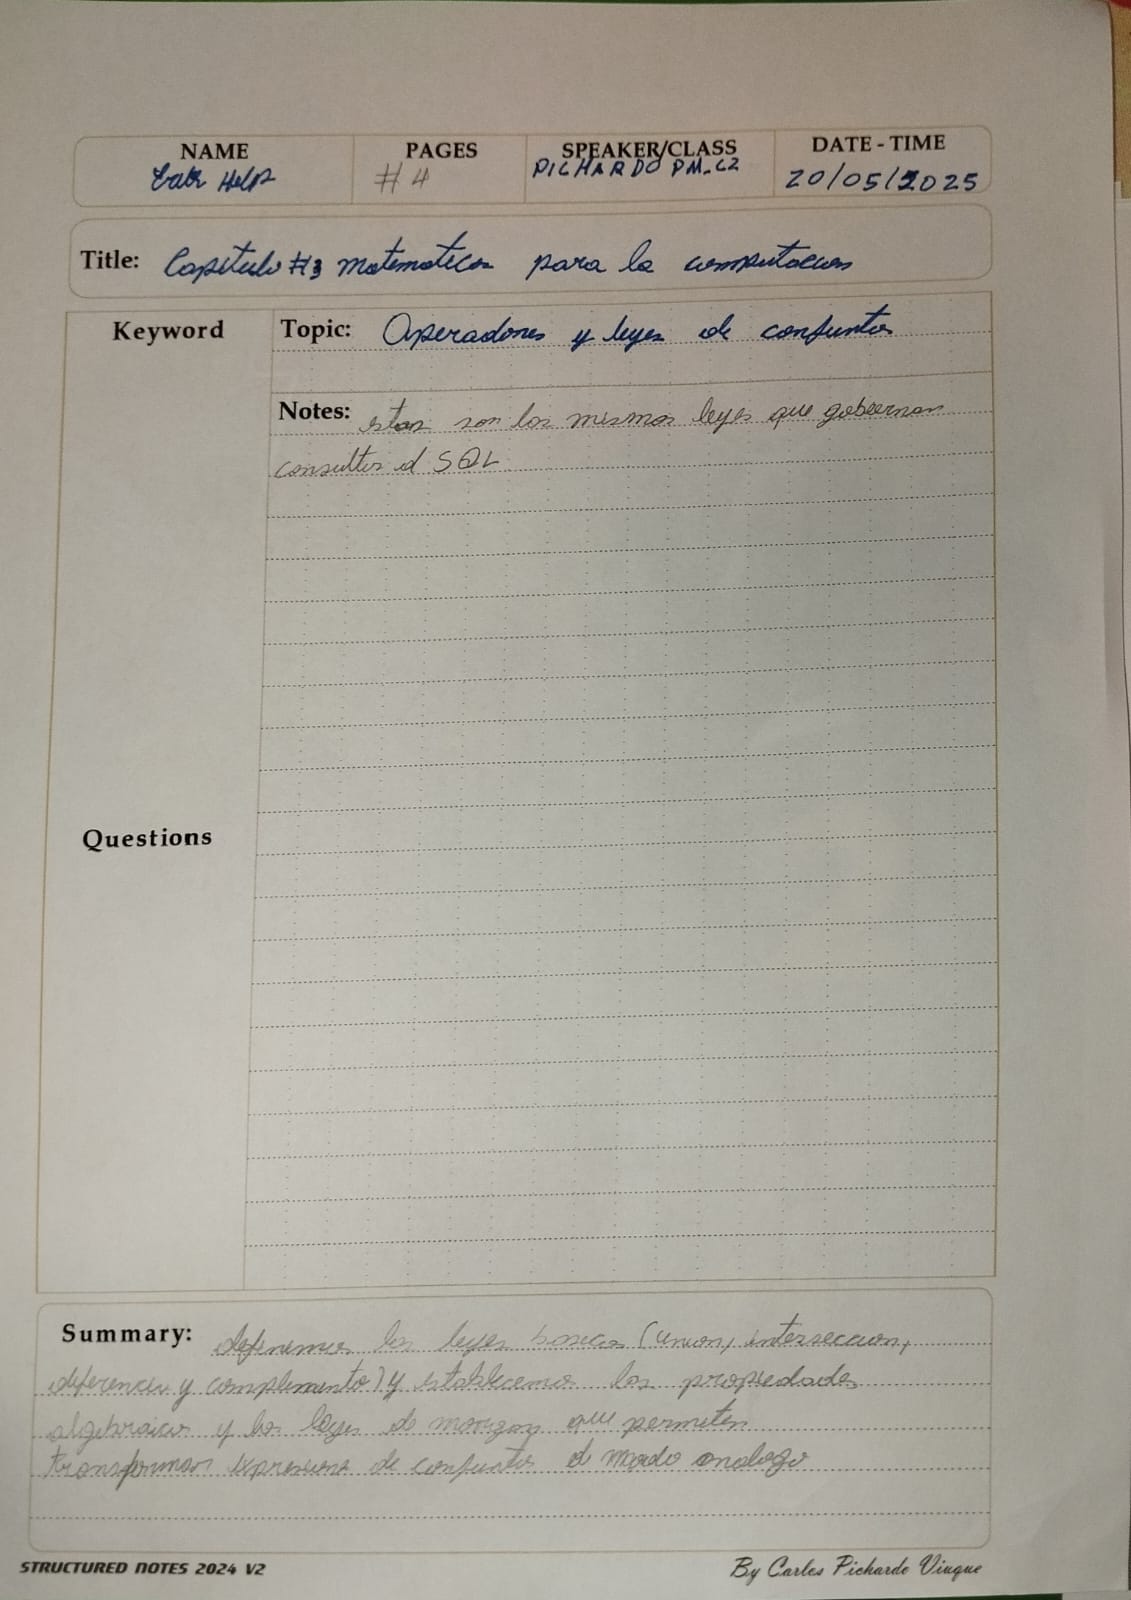 NAME
Help
PAGES
# 4
SPEAKER/CLASS
PICHARDO PM-C2
DATE - TIME
20/05/2025
Title: Capitulo #3 matematica para la computacion
Keyword
Topic: Operadores y leyes de conjuntos
Notes: estas son las mismas leyes que gobiernan
consultas d SQL
Questions
Summary: definimos las leyes basicas (union, interseccion,
diferencia y complemento) y establecemos las propiedades
algebraicas y las leyes de morgan que permiten
transformar expresiones de conjuntos d modo analogo
STRUCTURED NOTES 2024 V2
By Carlos Pichardo Viuque